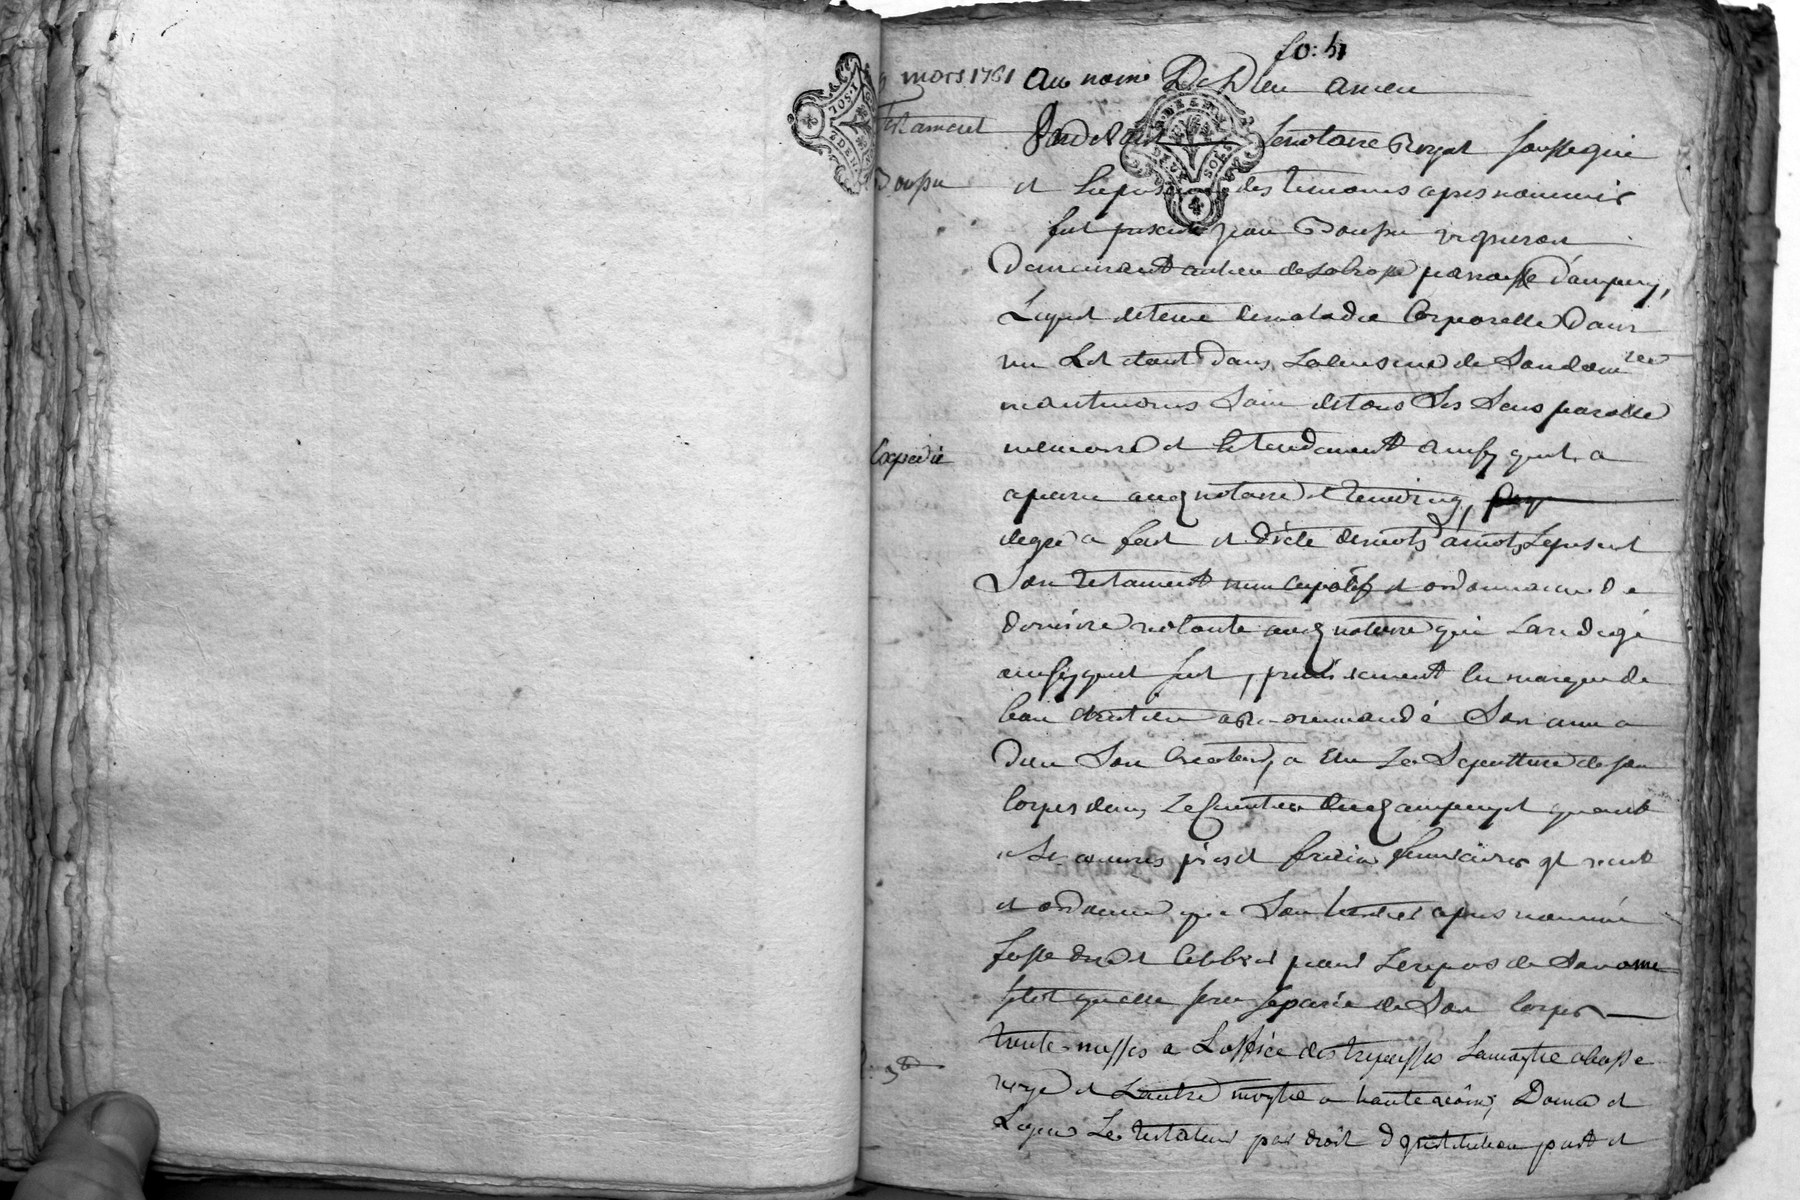 fo: 41
mars 1761 Au nom De Dieu amen
Testament Pardevant le notaire Royal soussigné
Doupu et En presence des temoins apres nommés
fut present Jean Doupu vigneron
Demeurant au lieu de parroisse d'ampuis,
Lequel detenu de maladie Corporelle Dans
un Lit etant Dans de Son dom
neantmoins Sain de tous Ses Sens parolle
memoire et Entendement ainsy quil a
aparu audt notaire et temoins,
de gré a fait et dicté de mots à mots Le present
Son testament nuncupatif et ordonnance de
derniere volonté audt notaire qui La redigé
ainsy quil suit, premierement En marque de
bon Chretien a Recommandé Son ame a
Dieu Son Createur, a Elu La Sepulture de son
Corps dans Le Cimetiere dudt ampuis et quant
a Ses œuvres pies et fraix funeraires il veut
et ordonne que Son heritier apres nommé
fasse dire et Celebrer pour Le repos de Son ame
sitot quelle sera separée de Son Corps
trente messes a Loffice des trepassés La moytié a basse
voye et Lautre moytié a haute voix; Donne et
Legue Le testateur par droit d'institution part et
Expedié